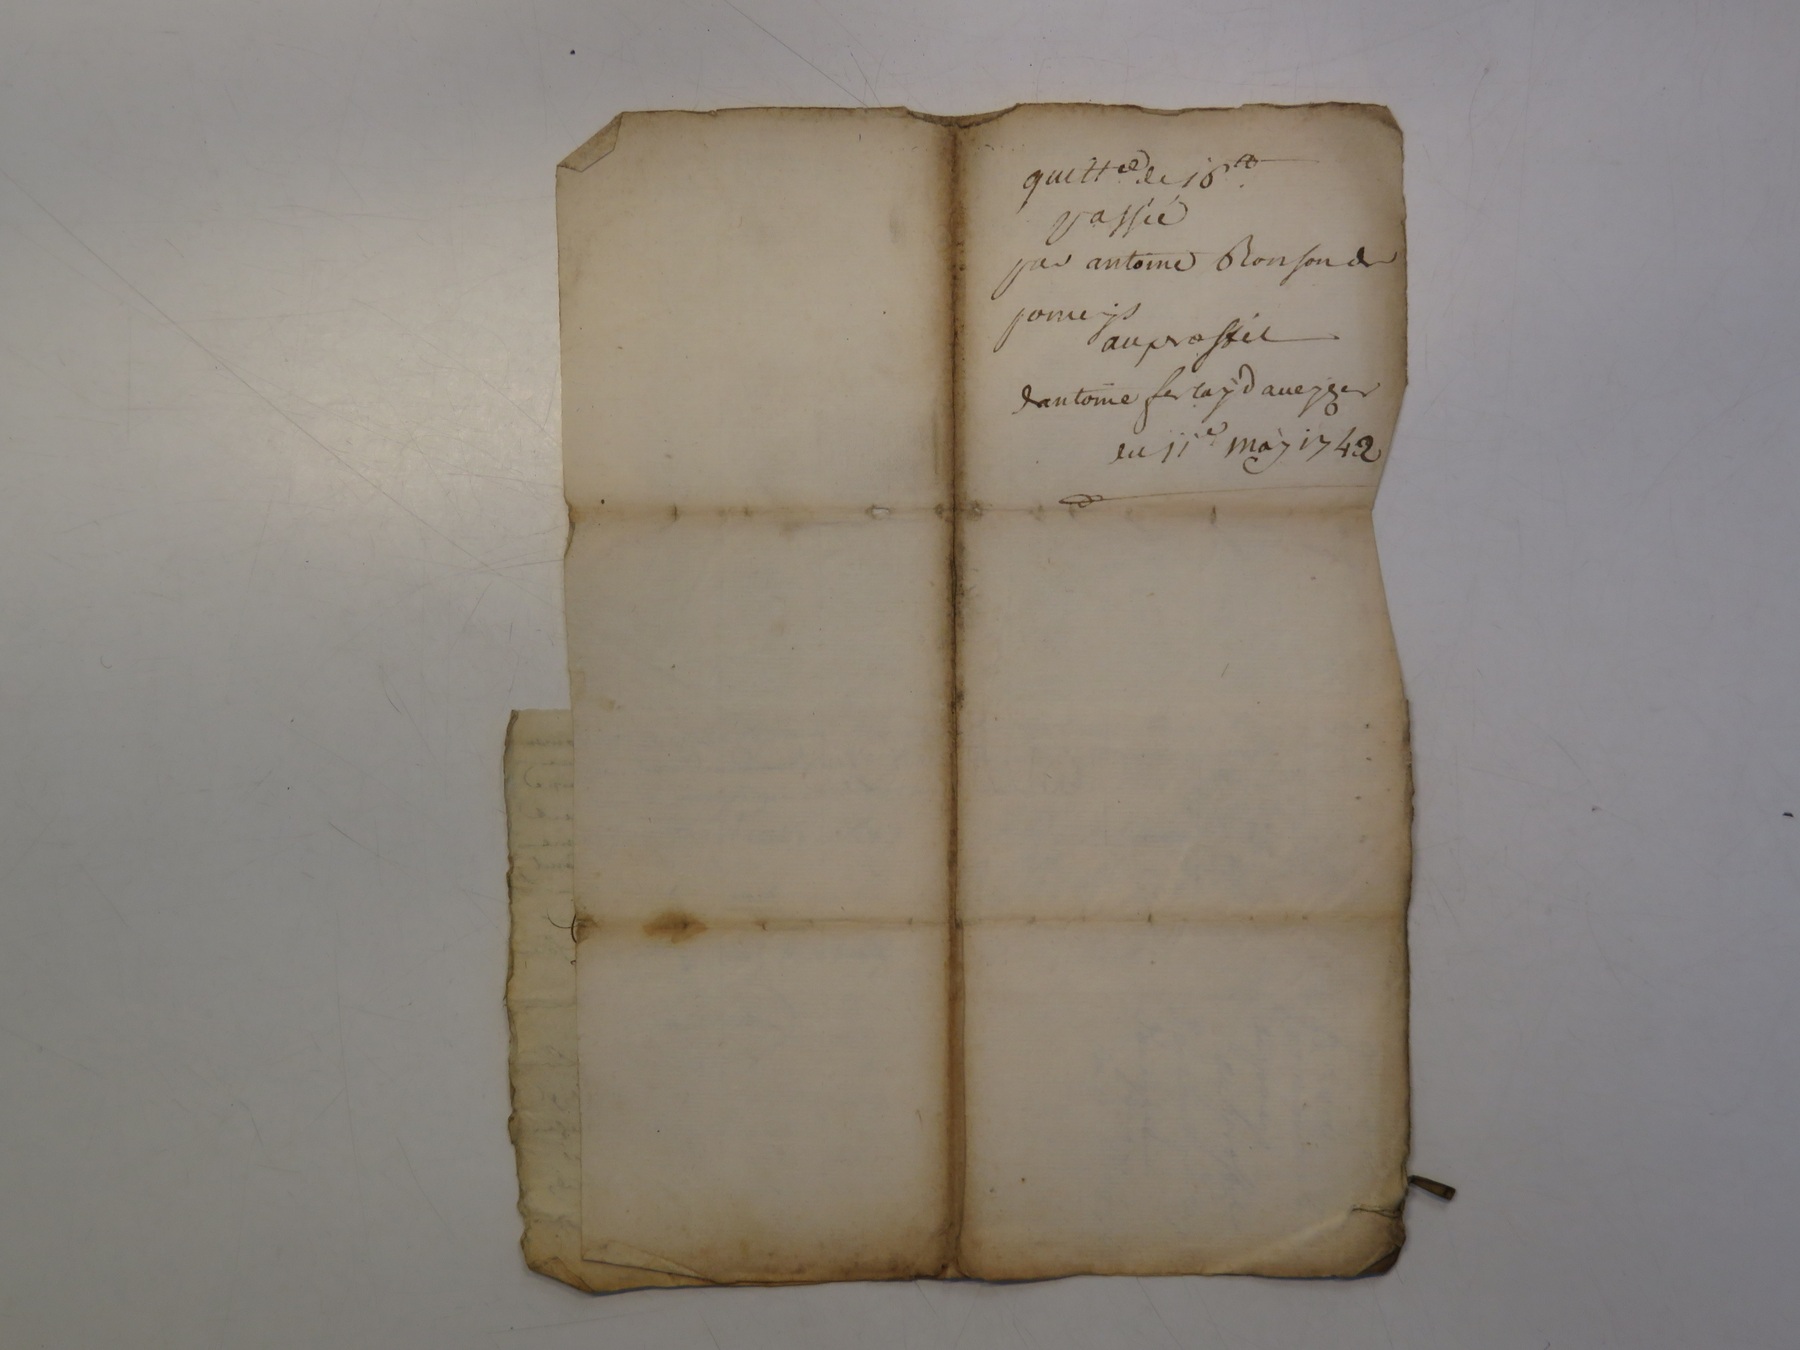 quittce de 16tt
passée
par antoine Ronson de
pomeys
au proffit
dantoine ferlay daveyzer
du 11e may 1742